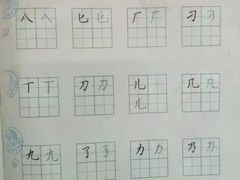 八 八 匕 匕 厂 厂 刁 刁
丁 丁 刀 刀 儿 儿 几 几
儿
九 九 了 了 力 力 乃 乃